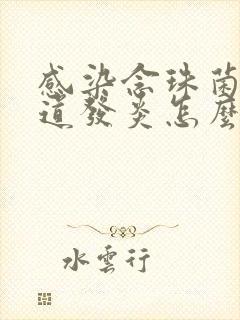 感染念珠菌
道發炎怎麼
水雲行